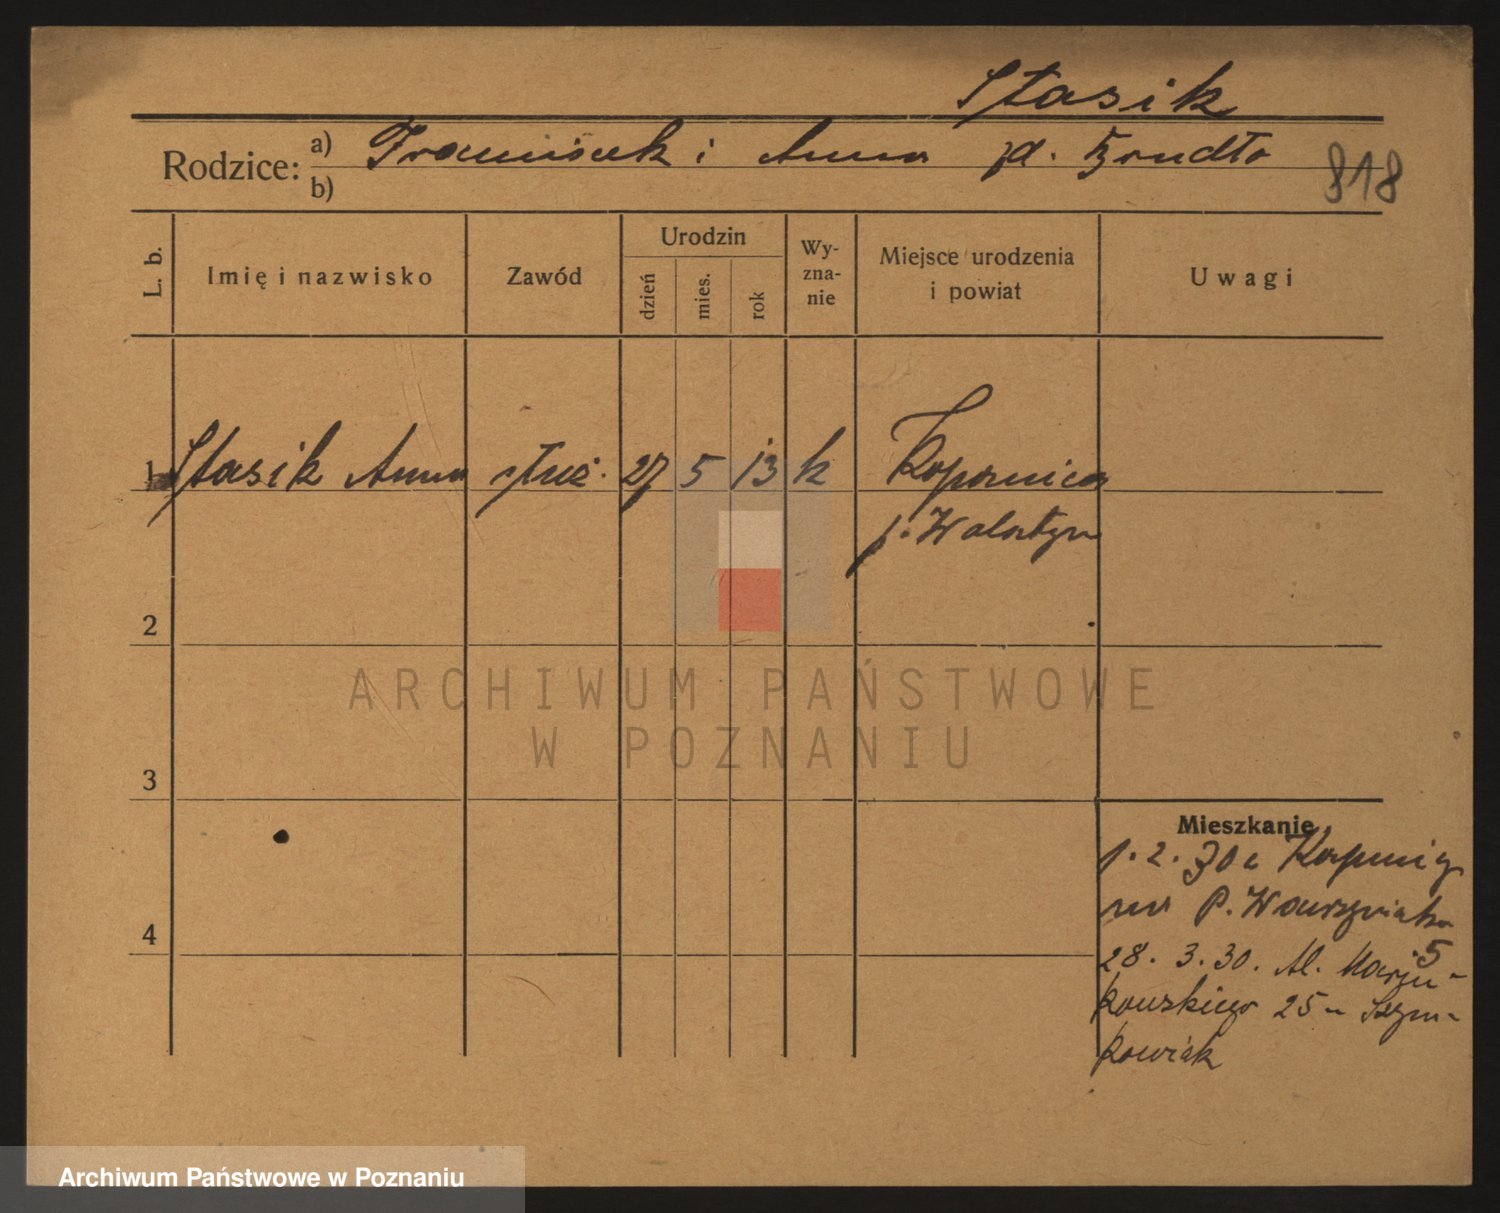 Stasik
Rodzice: a) Franciszek i Anna zd.
b)
818
L. b.
Imię i nazwisko
Zawód
Urodzin
dzień
mies.
rok
Wy-
zna-
nie
Miejsce urodzenia
i powiat
Uwagi
1 Stasik Anna służ. 27 5 13 k Kopanica
p. Wolsztyn
2
3
4
Mieszkanie
1. 2. 30 z
P. Wawrzyniaka
5
28. 3. 30. Al. Marcin-
kowskiego 25 - Szym-
kowiak
ARCHIWUM PAŃSTWOWE
W POZNANIU
Archiwum Państwowe w Poznaniu